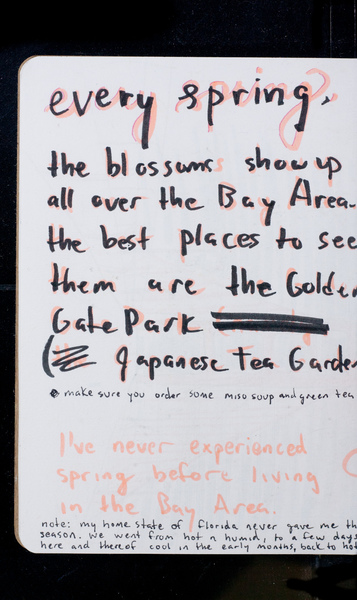 every spring,
the blossoms show up
all over the Bay Area.
the best places to see
them are the Golden
Gate Park
( Japanese Tea Garden
make sure you order some miso soup and green tea
I've never experienced
spring before living
in the Bay Area.
note: my home state of Florida never gave me th
season. we went from hot n humid, to a few days
here and thereof cool in the early months, back to hot